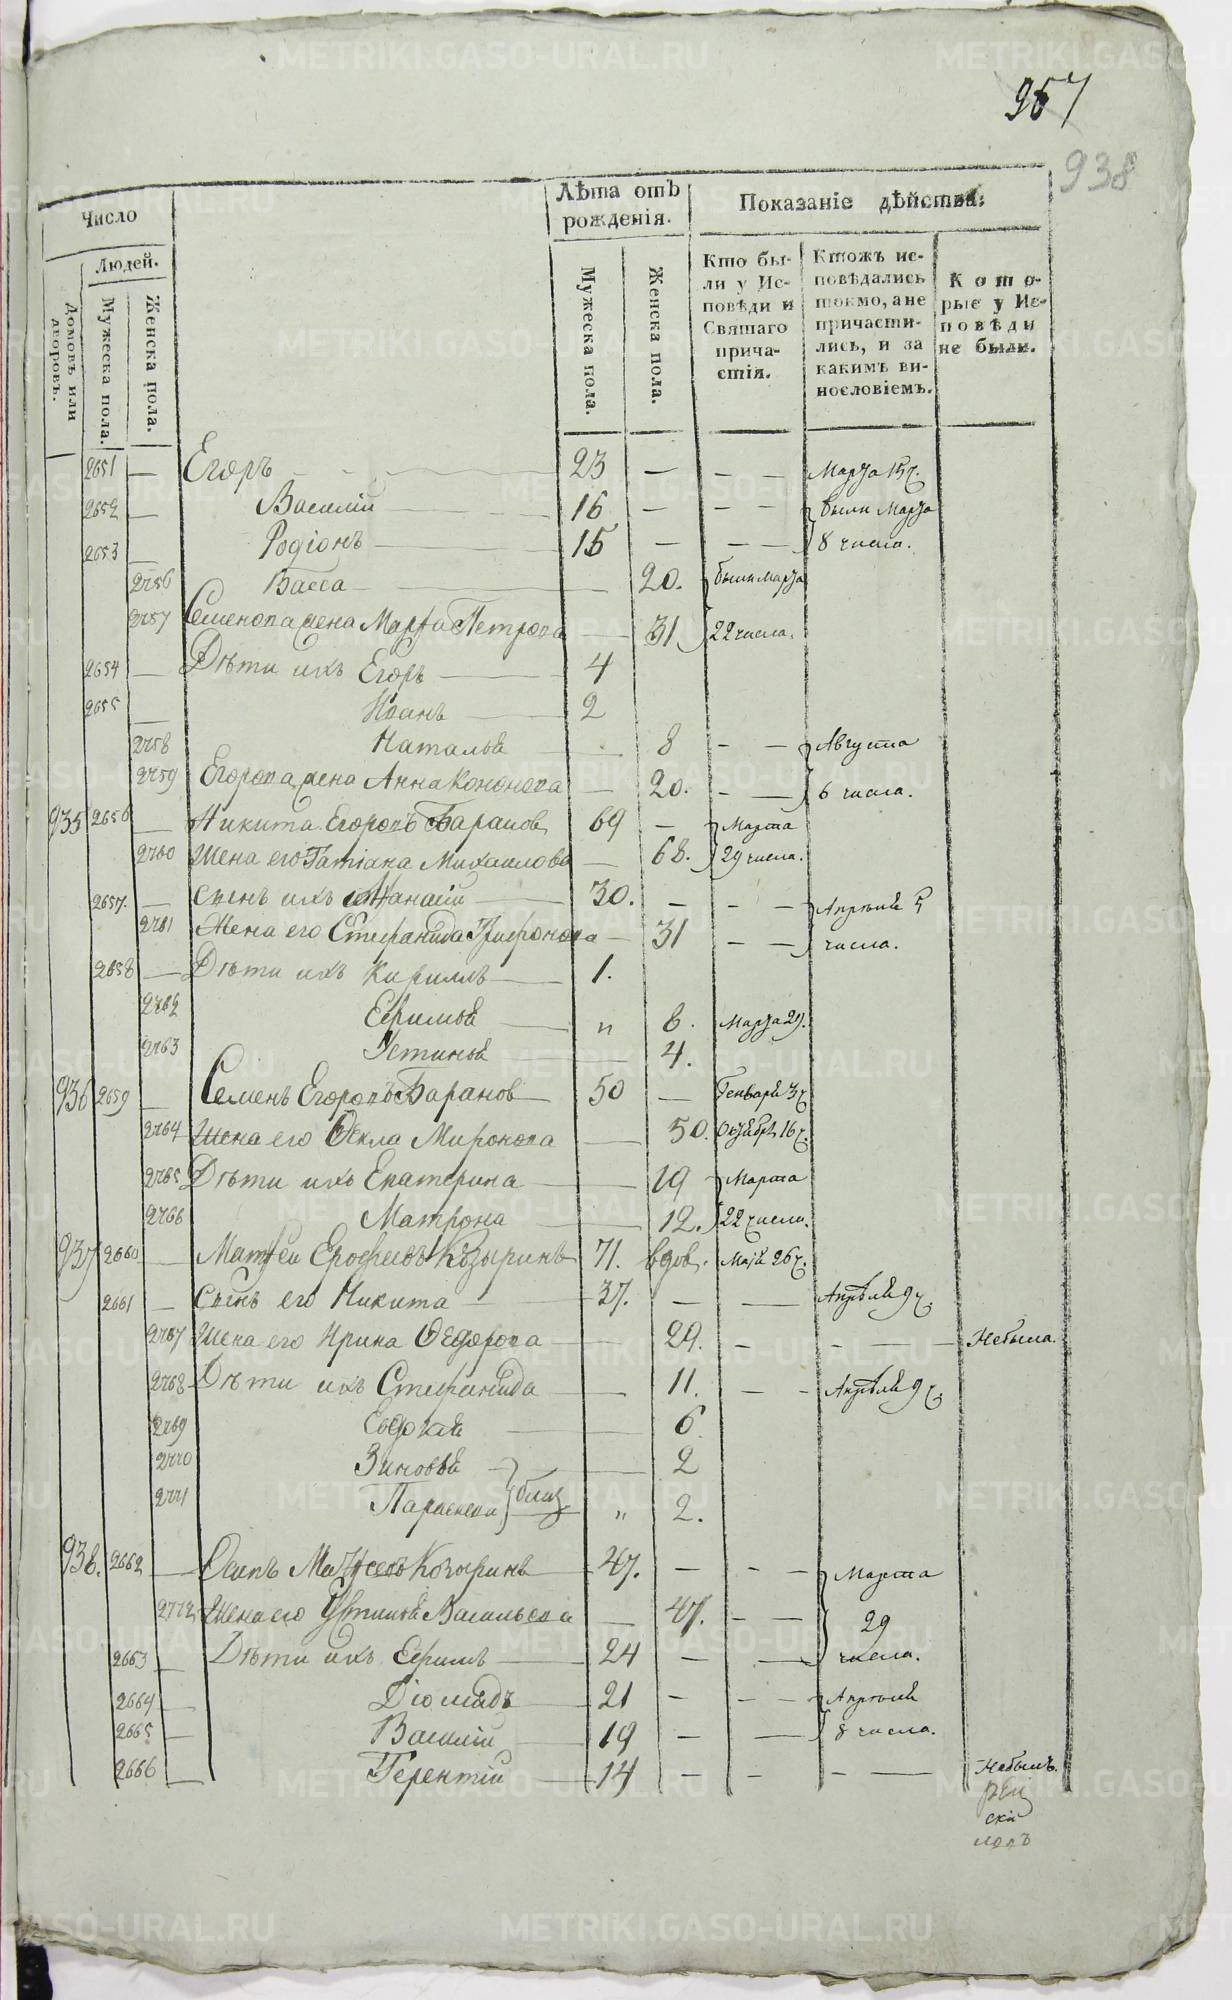 957
938
Число
Людей.
Домовъ или дворовъ.
Мужеска пола.
Женска пола.
Лѣта отъ рожденія.
Мужеска пола.
Женска пола.
Показаніе дѣйства:
Кто бы-
ли у Ис-
повѣди и
Святаго
прича-
стія.
Ктожъ ис-
повѣдались
токмо, а не
причасти-
лись, и за
какимъ ви-
нословіемъ.
Кото-
рые у Ис-
повѣди
не были.
2651 — Егоръ 23 — — — Марта 15 ч.
2652 — Василій 16 — — — были Марта
2653 — Родіонъ 15 — — — 8 числа.
2756 Васса — 20. были Марта
2757 Семенова жена Марѳа Петрова — 31 22 числа.
2654 — Дѣти ихъ Егоръ — 4
2655 — Иоанъ — 2
2758 Наталья — 8 — — Августа
2759 Егорова жена Анна Кононова — 20. — — 6 числа.
935 2656 — Никита Егоровъ Баранов 69 — Марта
2760 Жена его Татіана Михаилова — 68. 29 числа.
2657 — Сынъ ихъ Ананій 30. — — — Апрѣля 5
2761 Жена его Стефанида Трифонова — 31 — — числа.
2658 — Дѣти ихъ Кириллъ — 1.
2762 Ефимья — „ 6. Марта 29.
2763 Устинья — 4.
936 2659 — Семенъ Егоровъ Баранов — 50 — Генваря 3 ч
2764 Жена его Ѳекла Миронова — 50. Октября 16 ч.
2765 Дѣти ихъ Екатерина — 19 Марта
2766 Матрона — 12. 22 числа.
937 2660 — Матѳей Ерофеевъ Козыринъ 71. вдов. Маія 26 ч.
2661 — Сынъ его Никита — 37. — — Апрѣля 9 ч.
2767 Жена его Ирина Ѳедорова — 29. — — — Небыла.
2768 Дѣти ихъ Стефанида — 11. — — Апрѣля 9 ч.
2769 Евдокія — 6
2770 Зиновья — 2
2771 Параскева близ „ 2.
938. 2662 — Осипъ Матѳеевъ Козыринъ — 47. — — — Марта
2772 Жена его Устинья Васильева — 47. — — 29
2663 — Дѣти ихъ Ефимъ — 24 — — числа.
2664 — Діомидъ — 21 — — — Апрѣля
2665 — Василій — 19 — — 8 числа.
2666 — Терентій — 14 — — — — Небылъ.
скій